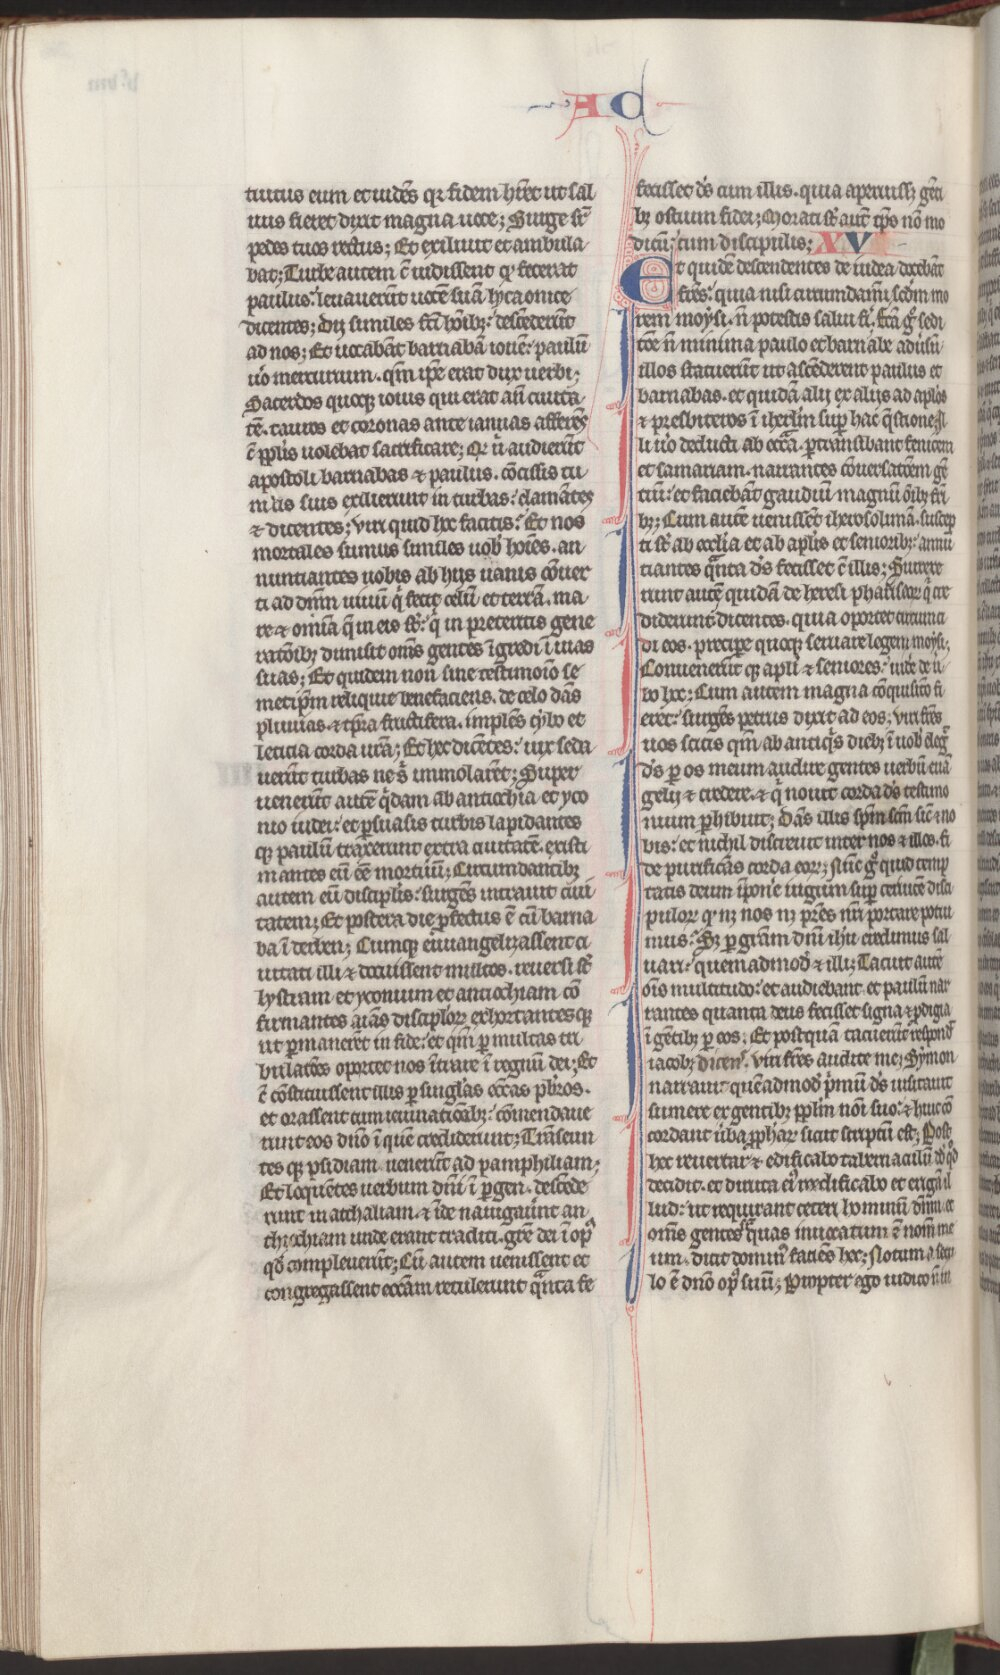 A C
tuitus eum et uidēs qr fidem hr̄et ut sal
uus fieret dixit magna uoce; Surge sr̄
pedes tuos rectus; Et exiliuit et ambula
bat; Turbe autem c̄ uidissent qr fecerat
paulus: leuauer̄t uocē suā lycaonice
dicentes; Dij similes fc̄i hoīb;: descēder̄t
ad nos; Et uocabāt barnabā iouē: paulū
uͦo mercurium. qm̄ ip̄e erat dux uerbi;
Sacerdos quoq; iouis qui erat añ ciuita
tē. tauros et coronas ante ianuas afferēs
c̄ pp̄lis uolebat sacrificare; Qr̄ ū audier̄t
apostoli barnabas & paulus. cōcissis tu
nicis suis exilierunt in turbas: clamātes
& dicentes; Viri quid hec facitis: Et nos
mortales sumus similes uob̄ hoīes. an
nuntiantes uobis ab hijs uanis cōuer
ti ad dn̄m uiuū q̄ fecit celū et terrā. ma
re & omīa q̄ in eis sr̄: q̄ in preteritis gene
ratōib; dimisit om̄s gentes īgredi ī uias
suas; Et quidem non sine testimoīo se
metip̄m reliquit benefaciens. de celo dās
pluuias. & tp̄ra fructifera. implēs cybo et
leticia corda ur̄a; Et hec dicētes: uix seda
uer̄t turbas ne s̄ immolarēt; Super
uener̄t autē q̄dam ab antiochia et yco
nio iudei: et p̄suasis turbis lapidantes
q; paulū traxerunt extra ciuitatē. existi
mantes eū eē mortuū; Circumdantib;
autem eū discip̄lis: surgēs intrauit ciui
tatem; Et postera die p̄fectus ē cū barna
ba ī derben; Cumq; euuangelizassent ci
uitati illi & docuissent multos. reuersi sr̄
lystram et yconium et antiochiam cō
firmantes aīas discip̄lor̄ exhortantes q;
ut p̄manerēt in fide: et qm̄ p̄ multas tri
bulatōes oportet nos ītrare ī regnū dei; Et
c̄ cōstituissent illis p̄ singl̄as ecc̄as pb̄ros.
et orassent cum ieiunatiōib;: cōmendaue
runt eos dn̄o ī quē crediderunt; Trāseun
tes q; psidiam. uener̄t ad pamphiliam;
Et loquētes uerbum dn̄i ī pergen. descēde
runt in atthaliam. & īde nauigauer̄t an
thiochiam unde erant traditi. gr̄e dei ī op̄
qd̄ compleuer̄t; Cū autem uenissent et
congregassent ecc̄am retulerunt qn̄ta fe
fecisset ds̄ cum illis. quia aperuiss; gēti
b; ostium fidei; Morati sr̄ aut̄ tp̄s nō mo
dicū cum discipulis; XV
Et quidē descendentes de iudea docebāt
fr̄es: quia nisi circumdam̄i scd̄m mo
rem moysi. n̄ potestis salui fi. Fc̄a g̊ sedi
tōe n̄ minima paulo et barnabe aduersū
illos statuer̄t ut ascēderent paulus et
barnabas. et quidā alij ex alijs ad ap̄los
& presbiteros ī iherl̄m sup̄ hac q̄stione; Il
li uͦo deducti ab ecc̄a. p̄transibant fenicem
et samariam. narrantes cōuersatiōem gē
tiū: et faciebāt gaudiū magnū oīb; fri
b;; Cum autē uenissēt iherosolimā. suscep
ti sr̄ ab eccl̄ia et ab ap̄lis et seniorib;: annū
tiantes qn̄ta ds̄ fecisset c̄ illis; Surrexe
runt autē quidā de heresi phariseor̄ q̄ cre
diderunt dicentes. quia oportet circumci
di eos. precipe quoq; seruare legem moysi;
Conuener̄t q; apl̄i & seniores: uide̊ de ū
bo hoc; Cum autem magna cōquisitio fi
eret: surgēs petrus dixit ad eos; Viri fr̄es
uos scitis qm̄ ab antiq̄s dieb; ī uob̄ eleg̊
ds̄ p̄ os meum audire gentes uerbū euā
gelij & credere. & q̄ nouit corda ds̄ testimo
nium p̄hibuit; Dās illis sp̄m sc̄m sic̄ & no
bis: et nichil discreuit inter nos & illos. fi
de purificās corda eor̄; Nūc g̊ quid temp
tatis deum īpone̊ iugum sup̄ ceruicē disci
pulor̄ qr̄ n; nos n; pr̄es nr̄i portare potui
mus: S; p̄ gr̄am dn̄i ih̄u credimus sal
uari: quemadmod̄ & illi; Tacuit autē
oīs multitudo: et audiebant et paulū nar
rantes quanta deus fecisset signa & p̄digia
ī gētib; p̄ eos; Et postquā tacuer̄t respond̄
iacob; dicen̄. Viri fr̄es audite me; Symon
narrauit quēadmod̄ p̄mū ds̄ uisitauit
sumere ex gentib; pp̄lm noī suo: & huic cō
cordant ūba pp̄har̄ sicut scriptū est; Post
hec reuertar & edificabo tabernaculū dd̄ qd̄
decidit. et diruta ei reedificabo et erigā il
lud: ut requirant ceteri hominū dn̄m et
om̄s gentes sr̄ quas inuocatum ē nom̄ me
um. dicit domin̄ faciēs hec; Notum a secu
lo ē dn̄o op̄ suū; Propter ego iudico n̄ in